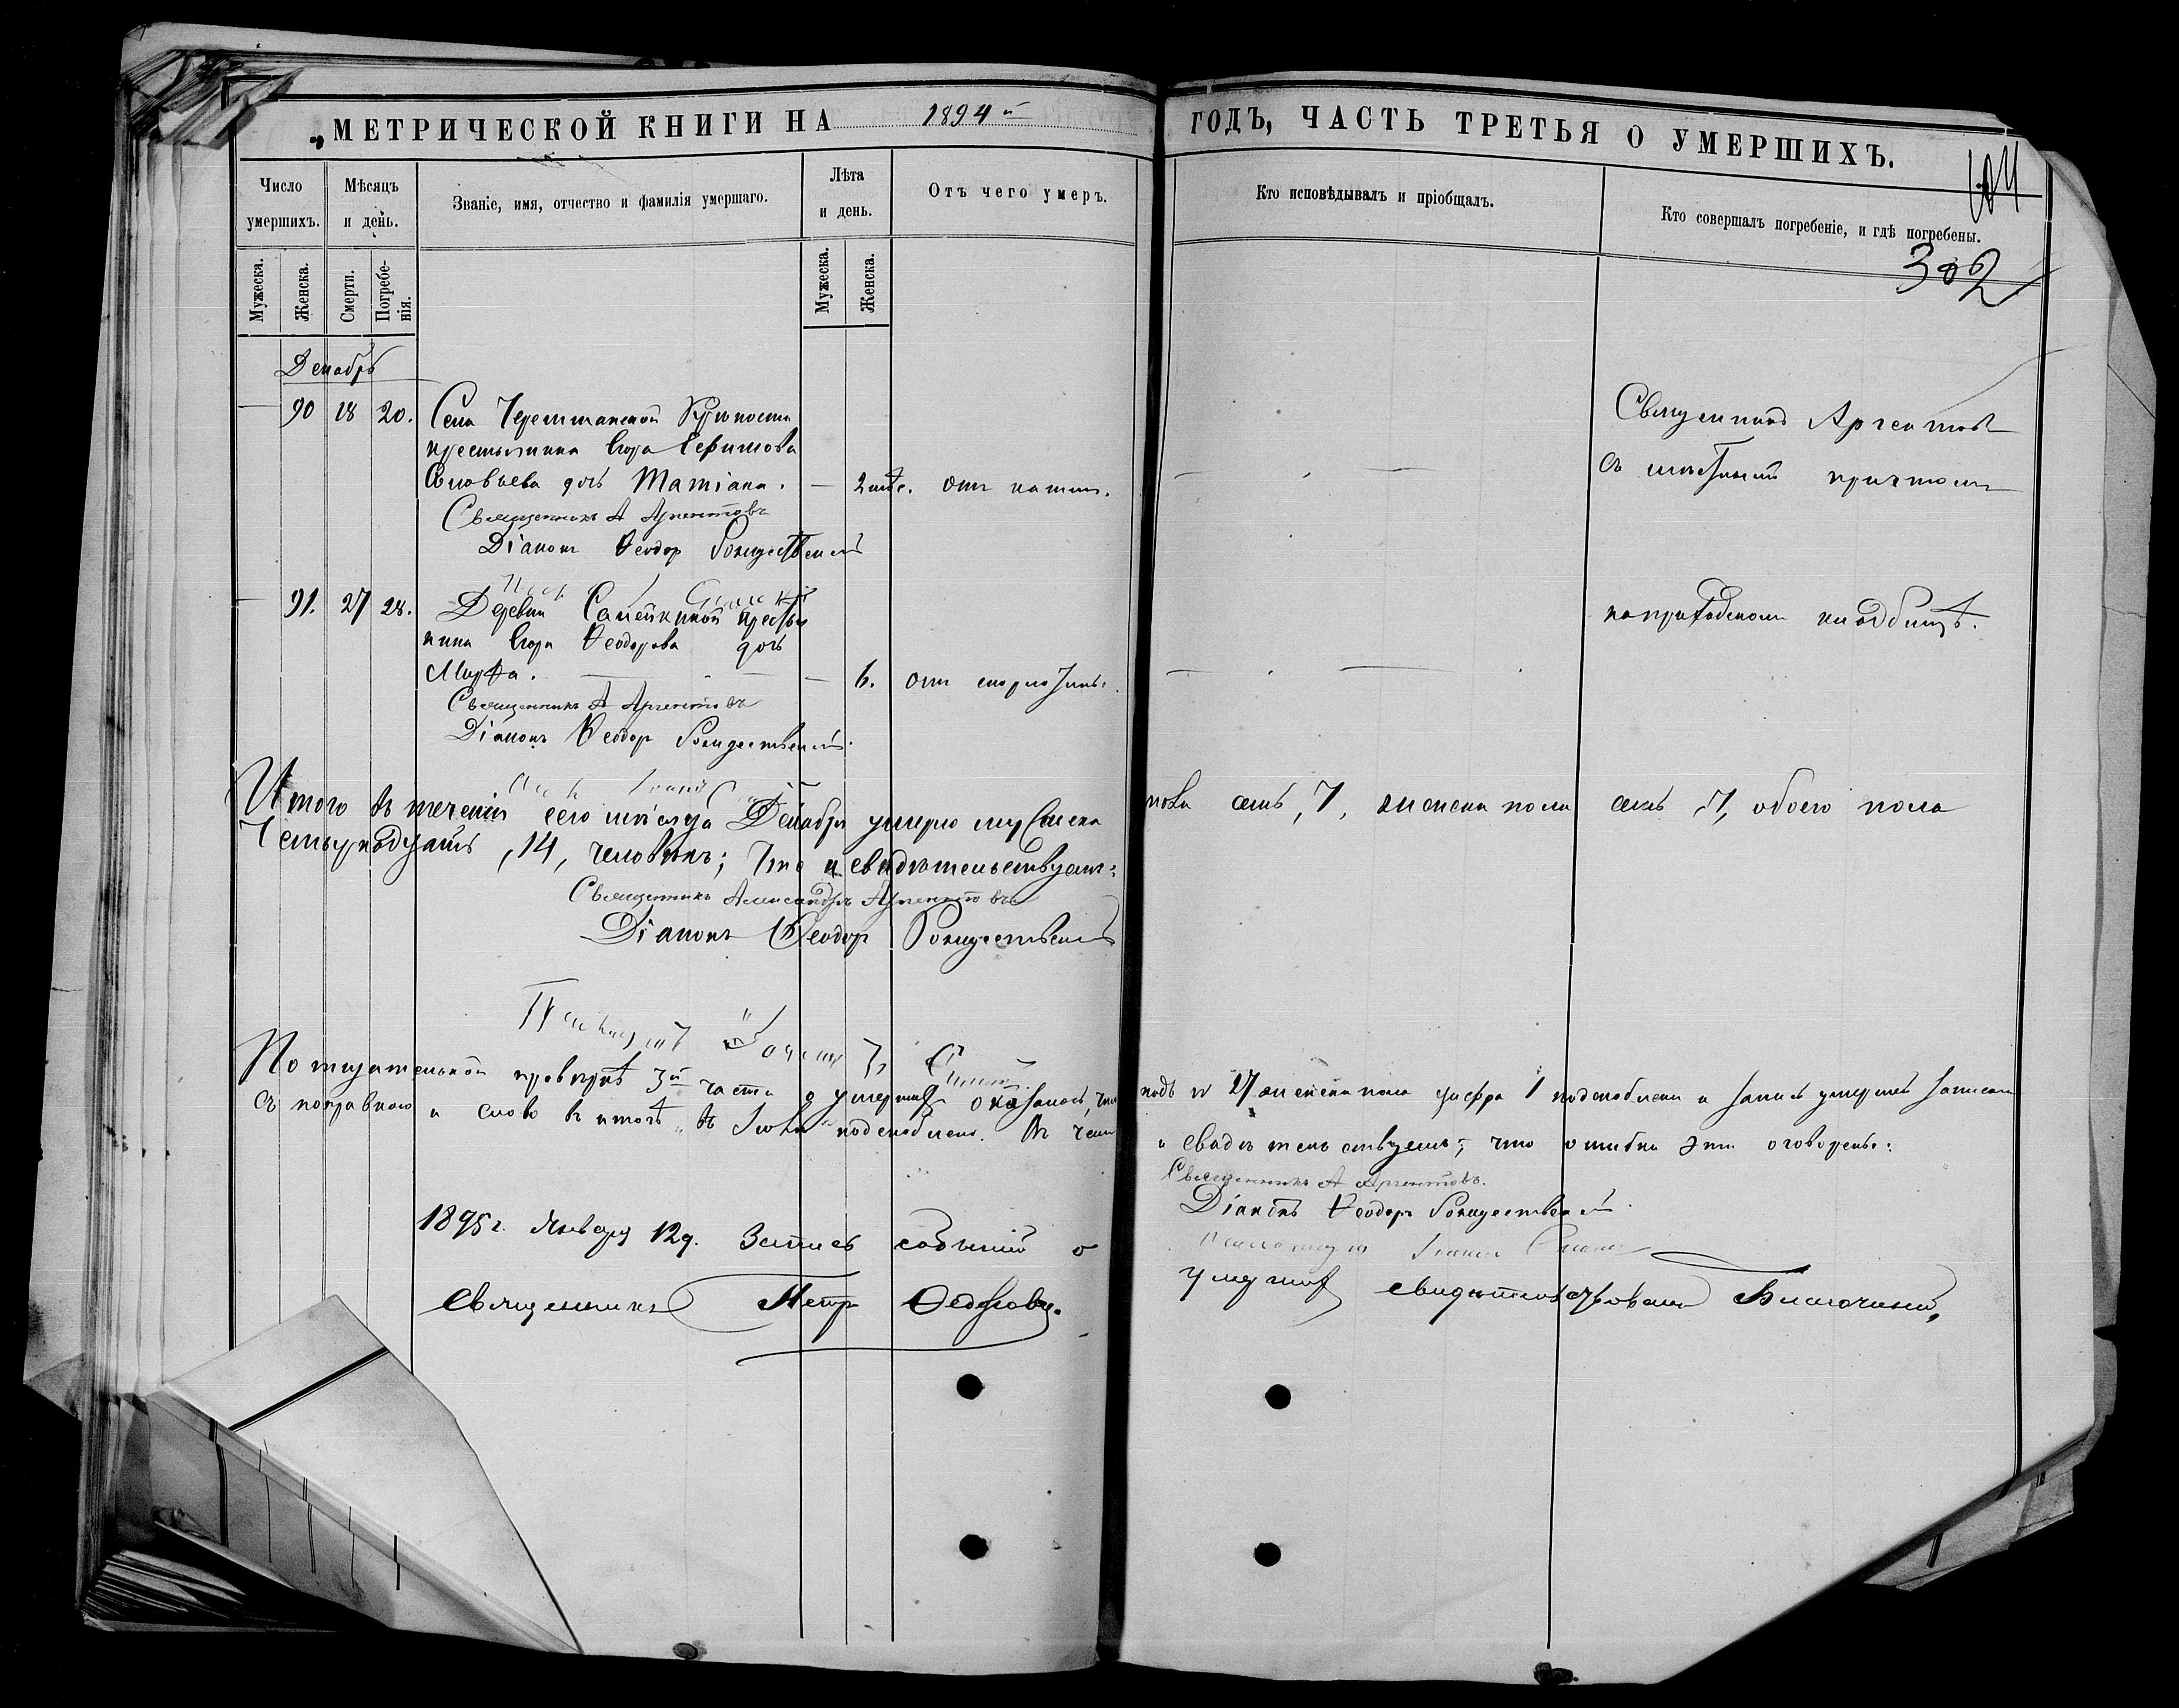 МЕТРИЧЕСКОЙ КНИГИ НА 1894й ГОДЪ, ЧАСТЬ ТРЕТЬЯ О УМЕРШИХЪ.
302
Число умершихъ.
Мѣсяцъ и день.
Званіе, имя, отчество и фамилія умершаго.
Лѣта и день.
Отъ чего умеръ.
Кто исповѣдывалъ и пріобщалъ.
Кто совершалъ погребеніе, и гдѣ погребены.
Мужеска.
Женска.
Смерти.
Погребенія.
Мужеска.
Женска.
Декабрь
90 18 20. Села Черемшанской Крѣпости
крестьянина Егора Ефимова
Соловьева дочь Татіана. 2 отъ
Священникъ А Аргентовъ
Діаконъ Ѳеодор Рождественскій
Священникъ Аргентовъ
съ причтомъ
91. 27 28. Деревни крестья
нина Егора Ѳеодорова дочь
Марѳа. 6. отъ
Священникъ А Аргентовъ
Діаконъ Ѳеодор Рождественскій
на приходскомъ кладбищѣ.
Итого въ теченіи сего мѣсяца Декабря умерло мужеска пола семь, 7, женска пола семь, 7, обоего пола
Четырнадцать, 14, человѣкъ; Что и свидѣтельствуемъ:
Священникъ Александръ Аргентовъ
Діаконъ Ѳеодор Рождественскій
По тщательной провѣркѣ 3й части о умершихъ оказалось, что подъ № 27 женска пола цифра 1 подскоблена и
съ поправкою и слово въ итогѣ подскоблено. Въ чемъ и свидѣтельствуемъ; что ошибки эти оговорены:
Священникъ А Аргентовъ.
Діаконъ Ѳеодоръ Рождественскій.
1895 г. Января 12 д. Запись событій о умершихъ свидѣтельствовалъ Благочинный,
Священникъ Петр Ѳедоровъ.